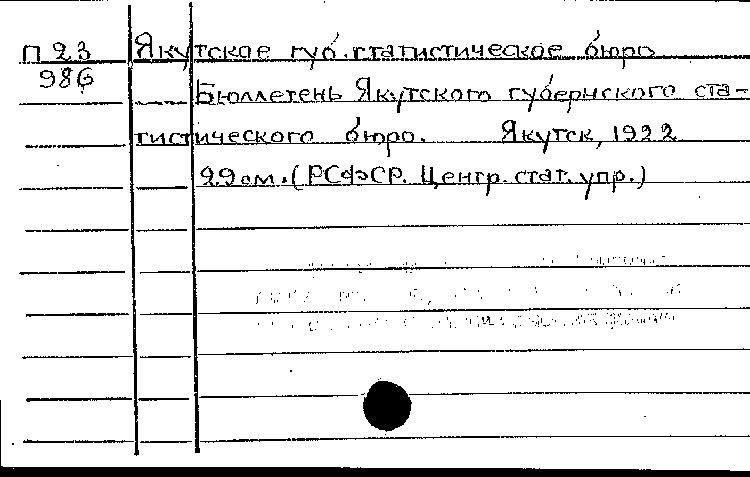 П 23 Якутское губ. статистическое бюро
986
Бюллетень Якутского губернского ста-
тистического бюро. Якутск, 1922
29 см. (РСФСР. Центр. стат. упр.)